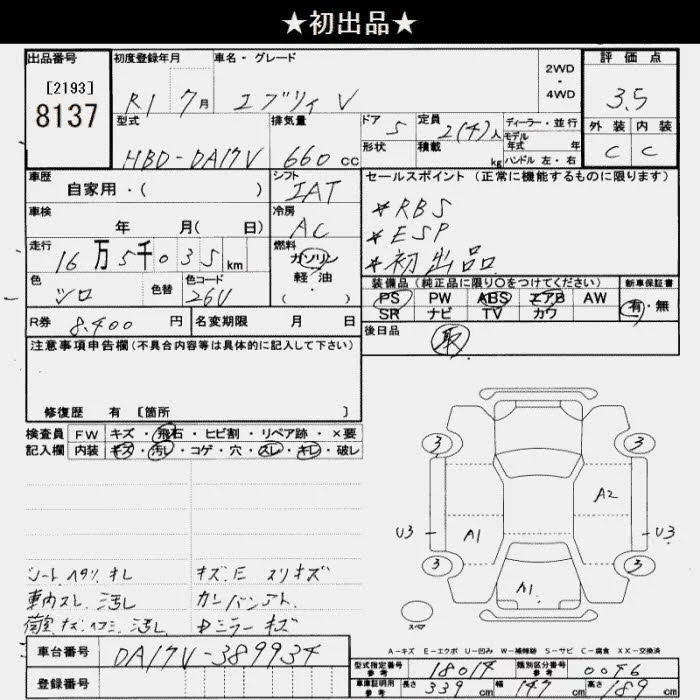 ★初出品★
出品番号 初度登録年月 車名・グレード 2WD・4WD 評価点
[2193]
8137
R1 7月 エブリィ V 3.5
型式 排気量 ドア 5 定員 2(4)人 ディーラー・並行 外装 内装
HBD-DA17V 660cc 形状 積載 kg モデル年式 年 ハンドル 左・右 C C
車歴 シフト セールスポイント (正常に機能するものに限ります)
自家用・( ) IAT
車検 冷房 *RBS
年 月( 日) AC *ESP
走行 燃料 *初出品
16万5千035km ガソリン 軽油・( )
色 色替 色コード 装備品 (純正品に限り○をつけてください) 新車保証書
シロ 26U PS PW ABS エアB AW 有・無
SR ナビ TV カワ
R券 8,400円 名変期限 月 日 後日品
取
注意事項申告欄(不具合内容等は具体的に記入して下さい)
修復歴 有 [箇所 ]
検査員 FW キズ・飛石・ヒビ割・リペア跡・×要
記入欄 内装 キズ・汚し・コゲ・穴・スレ・キレ・破レ
3 3
A2
U3 A1 U3
3 3
A1
スペア
シート ヘタリ キレ キズ、E スリキズ
車内スレ、汚し カンバンアト、
荷室 キズ、ヘコミ、汚し Dミラーキズ
A-キズ E-エクボ U-凹み W-補修跡 S-サビ C-腐食 XX-交換済
車台番号 DA17V-389934
型式指定番号 参考 18014 類別区分番号 参考 0046
登録番号
車庫証明用 参考 長さ 339cm 幅 147cm 高さ 189cm